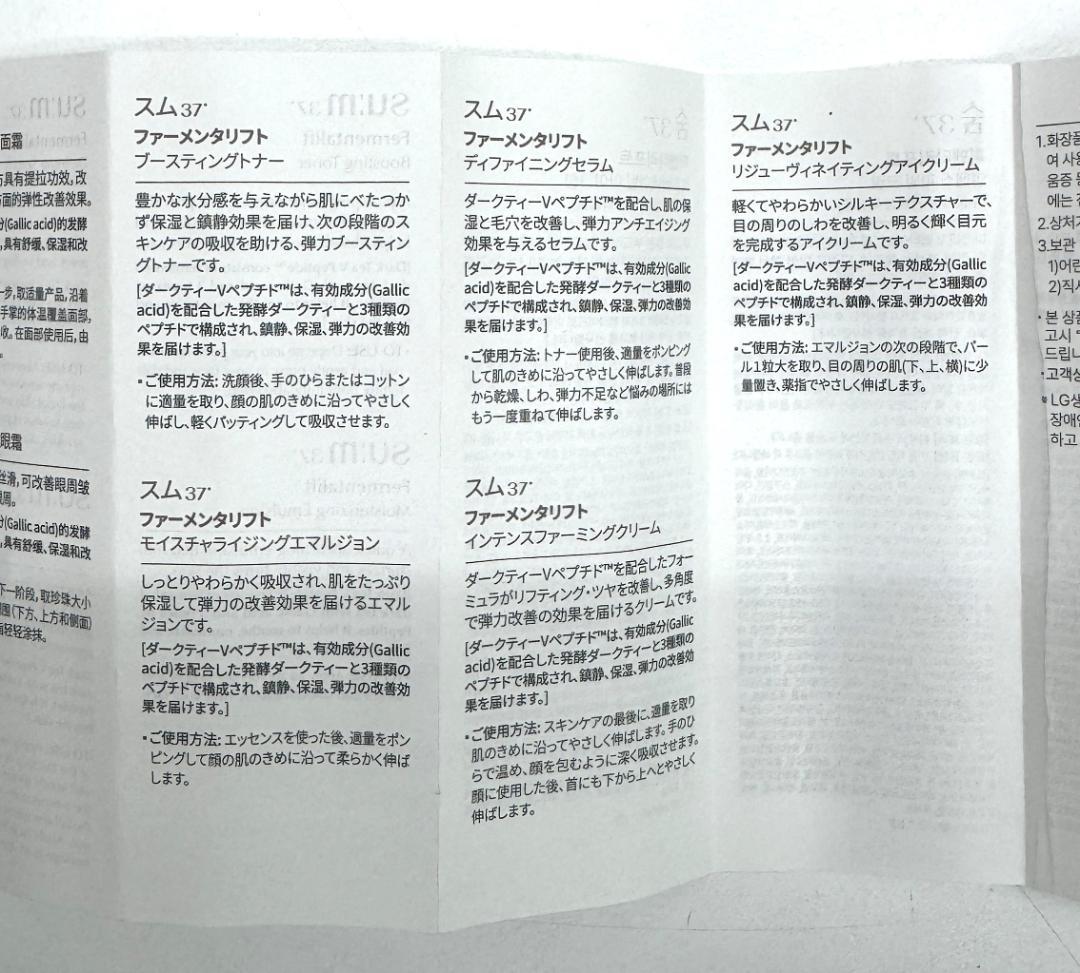 面霜
具有提拉功效,改
面的弹性改善效果。
(Gallic acid)的发酵
具有舒缓、保湿和改
步,取适量产品,沿着
手掌的体温覆盖面部,
收。在面部使用后,由
眼霜
丝滑,可改善眼周皱
(Gallic acid)的发酵
具有舒缓、保湿和改
下一阶段,取珍珠大小
围(下方、上方和侧面)
轻轻涂抹。
スム37°
ファーメンタリフト
ブースティングトナー
豊かな水分感を与えながら肌にべたつか
ず保湿と鎮静効果を届け、次の段階のス
キンケアの吸収を助ける、弾力ブースティン
グトナーです。
[ダークティーVペプチド™は、有効成分(Gallic
acid)を配合した発酵ダークティーと3種類の
ペプチドで構成され、鎮静、保湿、弾力の改善効
果を届けます。]
•ご使用方法: 洗顔後、手のひらまたはコットン
に適量を取り、顔の肌のきめに沿ってやさしく
伸ばし、軽くパッティングして吸収させます。
スム37°
ファーメンタリフト
モイスチャライジングエマルジョン
しっとりやわらかく吸収され、肌をたっぷり
保湿して弾力の改善効果を届けるエマル
ジョンです。
[ダークティーVペプチド™は、有効成分(Gallic
acid)を配合した発酵ダークティーと3種類の
ペプチドで構成され、鎮静、保湿、弾力の改善効
果を届けます。]
•ご使用方法: エッセンスを使った後、適量をポン
ピングして顔の肌のきめに沿って柔らかく伸ば
します。
スム37°
ファーメンタリフト
ディファイニングセラム
ダークティーVペプチド™を配合し、肌の保
湿と毛穴を改善し、弾力アンチエイジング
効果を与えるセラムです。
[ダークティーVペプチド™は、有効成分(Gallic
acid)を配合した発酵ダークティーと3種類の
ペプチドで構成され、鎮静、保湿、弾力の改善効
果を届けます。]
•ご使用方法: トナー使用後、適量をポンピング
して肌のきめに沿ってやさしく伸ばします。普段
から乾燥、しわ、弾力不足など悩みの場所には
もう一度重ねて伸ばします。
スム37°
ファーメンタリフト
インテンスファーミングクリーム
ダークティーVペプチド™を配合したフォー
ミュラがリフティング・ツヤを改善し、多角度
で弾力改善の効果を届けるクリームです。
[ダークティーVペプチド™は、有効成分(Gallic
acid)を配合した発酵ダークティーと3種類の
ペプチドで構成され、鎮静、保湿、弾力の改善効
果を届けます。]
•ご使用方法: スキンケアの最後に、適量を取り
肌のきめに沿ってやさしく伸ばします。手のひ
らで温め、顔を包むように深く吸収させます。
顔に使用した後、首にも下から上へとやさしく
伸ばします。
スム37°
ファーメンタリフト
リジューヴィネイティングアイクリーム
軽くてやわらかいシルキーテクスチャーで、
目の周りのしわを改善し、明るく輝く目元
を完成するアイクリームです。
[ダークティーVペプチド™は、有効成分(Gallic
acid)を配合した発酵ダークティーと3種類の
ペプチドで構成され、鎮静、保湿、弾力の改善効
果を届けます。]
•ご使用方法: エマルジョンの次の段階で、パー
ル1粒大を取り、目の周りの肌(下、上、横)に少
量置き、薬指でやさしく伸ばします。
1.화장품
여 사용
움증 등
에는 전
2.상처가
3.보관
1)어린
2)직사
• 본 상품
고시
드립니
•고객상
• LG생
장애인
하고